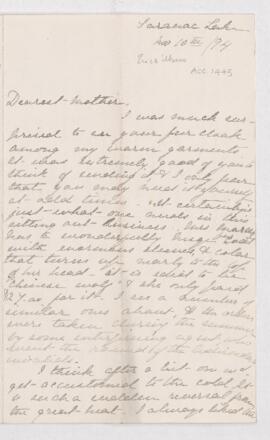 Saranac Lake
10th /94
ACC 1445
Dearest Mother.
I was much sur-
prised to see your fur cloak
among my warm garments
It was extremely good of you to
think of sending it & I only fear
that you may need it yourself
at odd times. It certainly is
just what one needs in this
sitting out business. Mrs
has a wonderfully huge
with enormous sleeves & collar
that turns up nearly to the top
of his head. It is called
"Chinese wolf" & she only paid
for it. I see a number of
similar ones about, & the orders
were taken during the summer
by some enterprising agent who
went the rounds of the
invalids.
I think after a bit one will
get accustomed to the cold, but
is such a sudden reversal from
the great heat. I always liked the